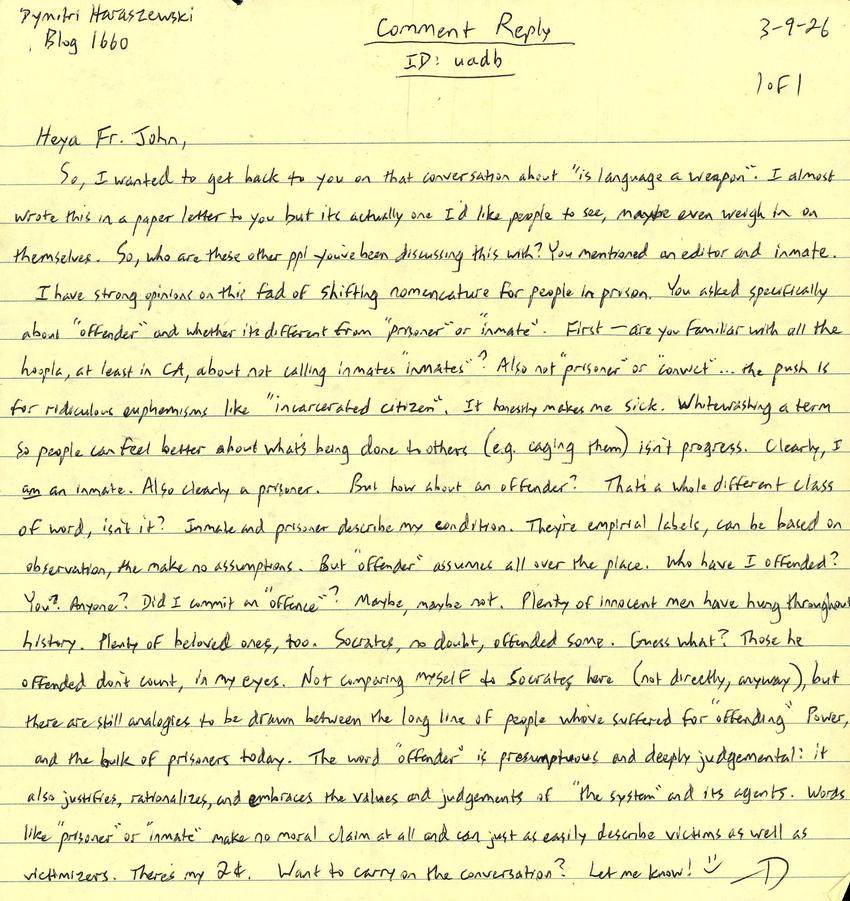 Dymitri Haraszewski
Blog 1660
Comment Reply
ID: uadb
3-9-26
1 of 1
Heya Fr. John,
So, I wanted to get back to you on that conversation about "is language a weapon". I almost
wrote this in a paper letter to you but its actually one I'd like people to see, maybe even weigh in on
themselves. So, who are these other ppl you've been discussing this with? You mentioned an editor and inmate.
I have strong opinions on this fad of shifting nomencature for people in prison. You asked specifically
about "offender" and whether its different from "prisoner" or "inmate". First – are you familiar with all the
hoopla, at least in CA, about not calling inmates "inmates"? Also not "prisoner" or "convict"... the push is
for ridiculous euphemisms like "incarcerated citizen". It honestly makes me sick. Whitewashing a term
so people can feel better about what's being done to others (e.g. caging them) isn't progress. Clearly, I
am an inmate. Also clearly a prisoner. But how about an offender? That's a whole different class
of word, isn't it? Inmate and prisoner describe my condition. They're empirial labels, can be based on
observation, the make no assumptions. But "offender" assumes all over the place. Who have I offended?
You? Anyone? Did I commit an "offence"? Maybe, maybe not. Plenty of innocent men have hung throughout
history. Plenty of beloved ones, too. Socrates, no doubt, offended some. Guess what? Those he
offended don't count, in my eyes. Not comparing myself to Socrates here (not directly, anyway), but
there are still analogies to be drawn between the long line of people who've suffered for "offending" Power,
and the bulk of prisoners today. The word "offender" is presumptuous and deeply judgemental: it
also justifies, rationalizes, and embraces the values and judgements of "the system" and its agents. Words
like "prisoner" or "inmate" make no moral claim at all and can just as easily describe victims as well as
victimizers. There's my 2¢. Want to carry on the conversation? Let me know! D